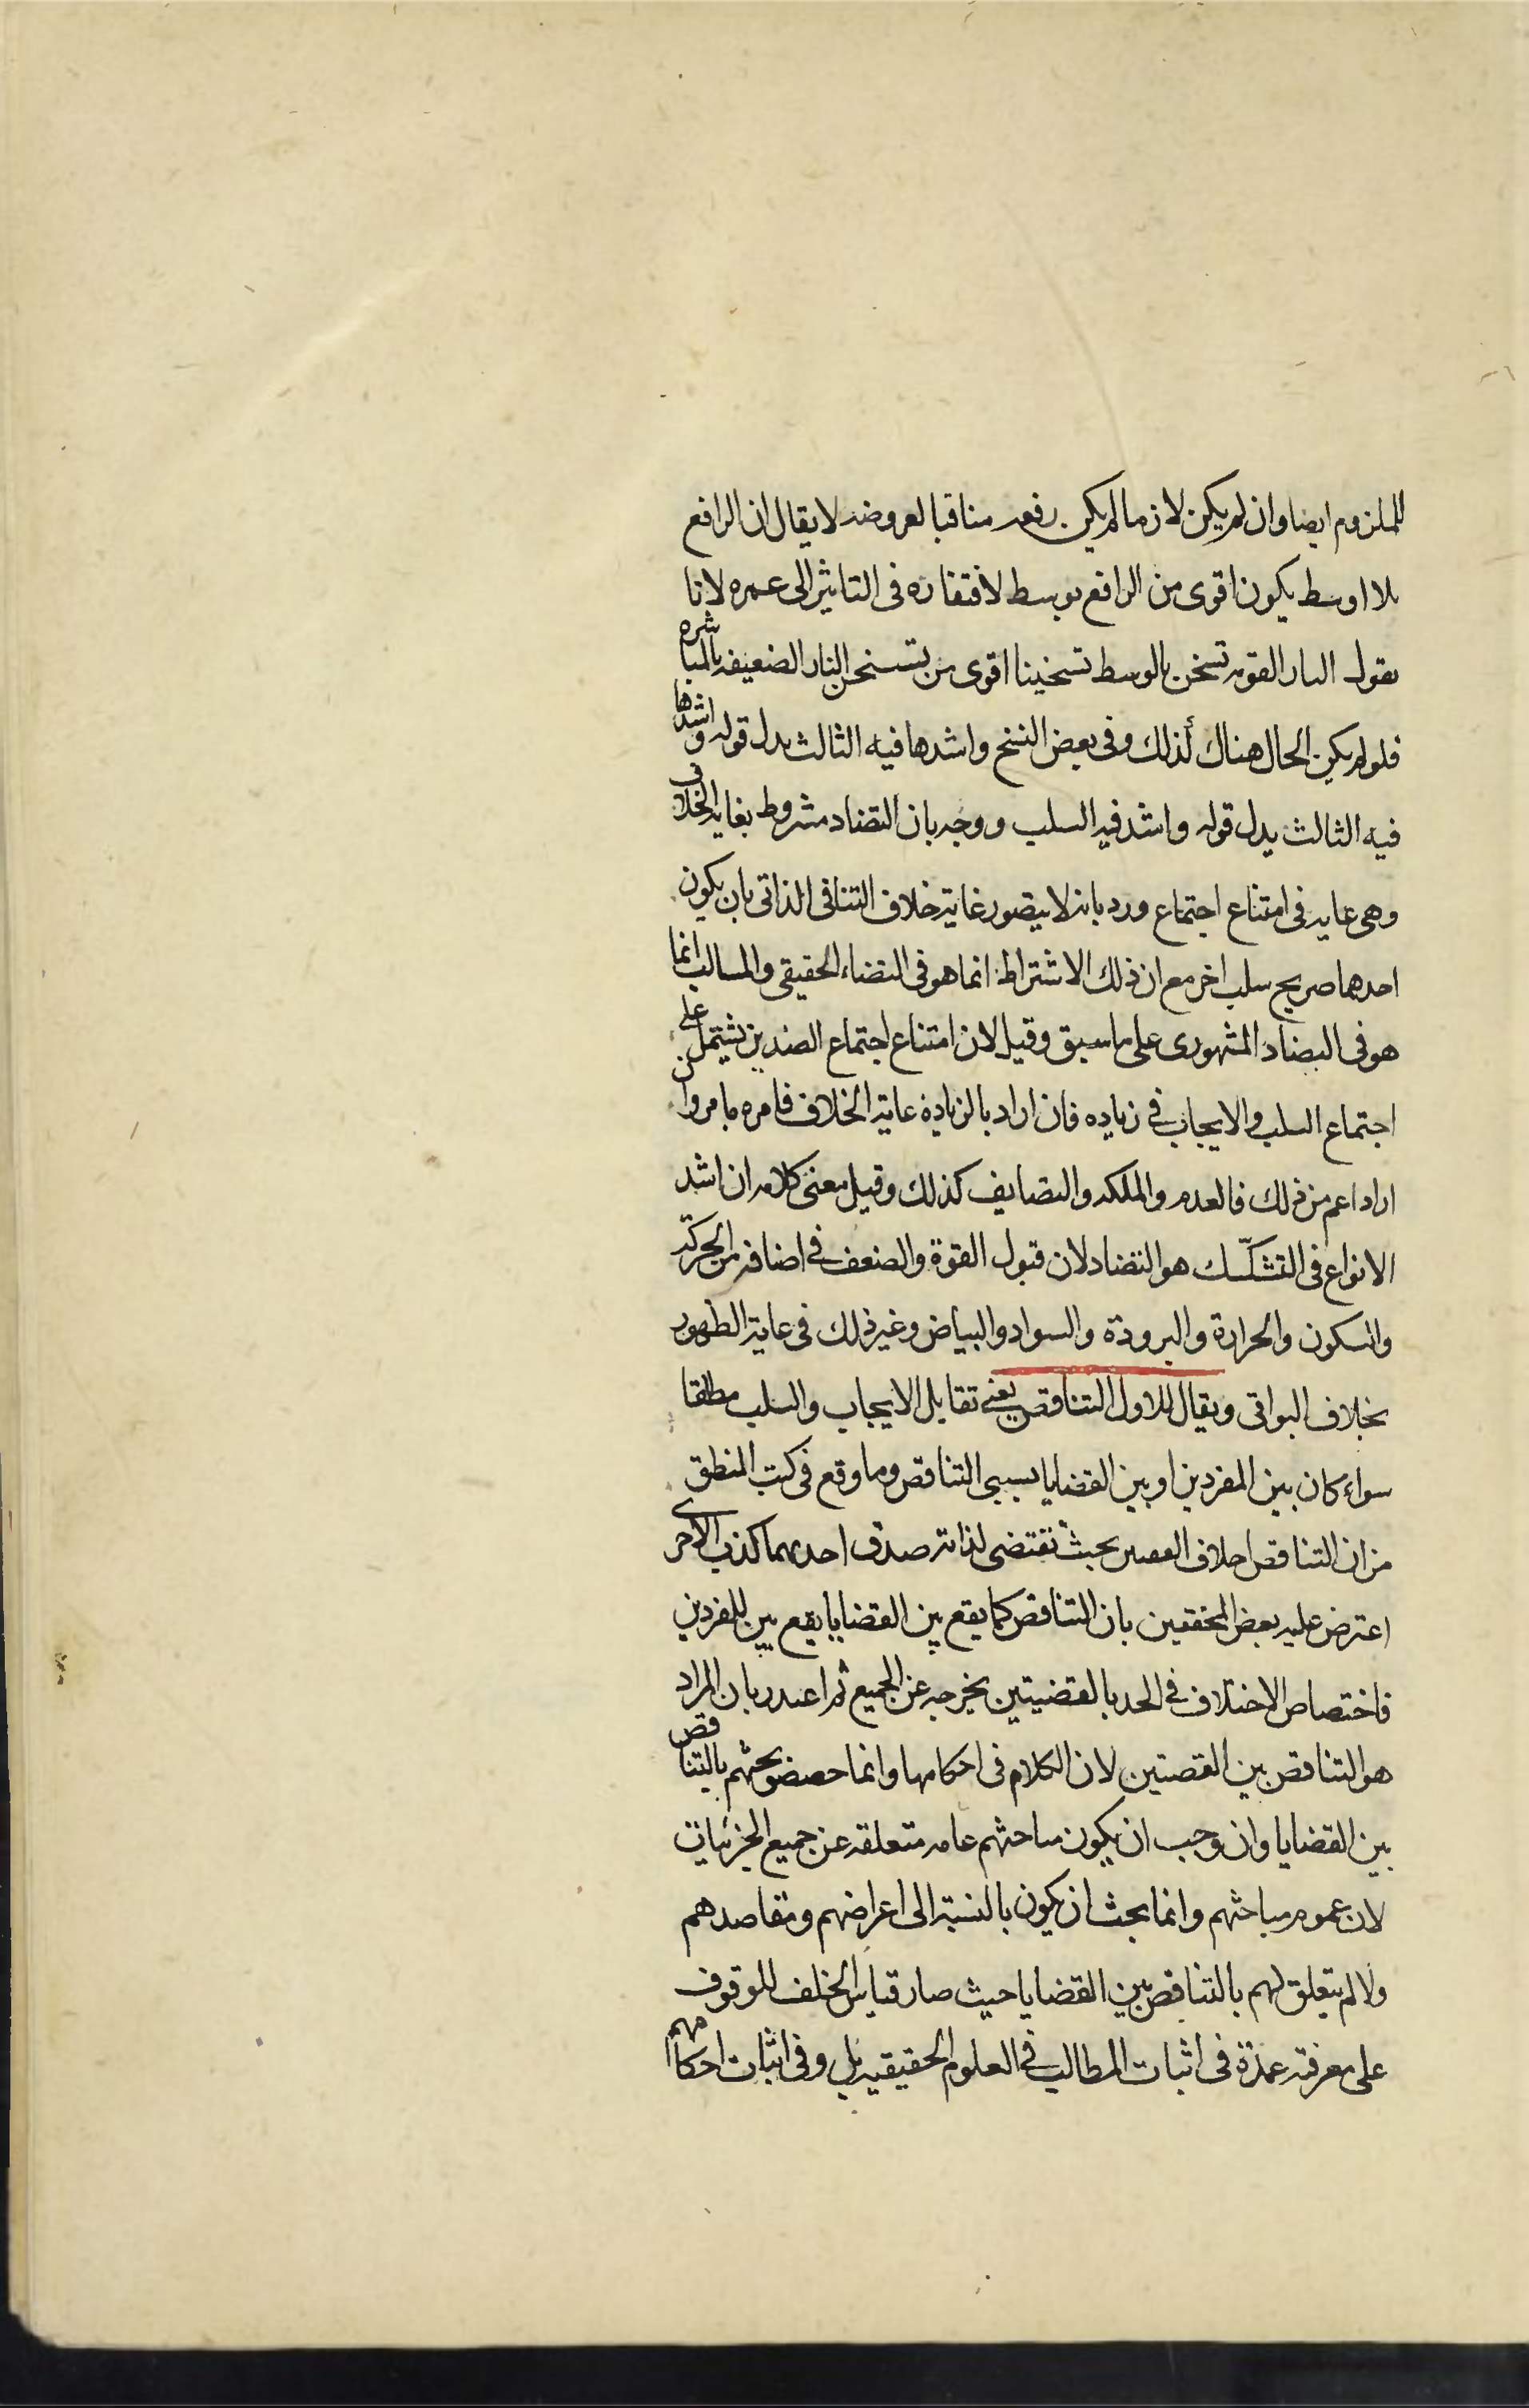 للملزوم ايضا وان لم يكن لازما لم يكن رفعه منافيا لعروضه لا يقال ان الرافع
بلا اوسط يكون اقوى من الرافع بوسط لافتقاره فى التاثير الى غيره لانا
نقول النار القويه تسخن بالوسط تسخينا اقوى من تسخن النار الضعيفه بالمباشره
فلو لم يكن الحال هناك لذلك وفى بعض النسخ واشدها فيه الثالث بدل قوله واشدها
فيه الثالث بدل قوله واشد فيه السلب ووجه بان التضاد مشروط بغايه الخلاف
وهى غايه فى امتناع اجتماع ورد بانه لا يتصور غاية خلاف التنافى الذاتى بان يكون
احدهما صريح سلب اخر مع ان ذلك الاشتراط انما هو فى التضاد الحقيقى والمسالب انما
هو فى التضاد المشهورى على ما سبق وقيل لان امتناع اجتماع الضدين يشتمل على
اجتماع السلب والايجاب فى زياده فان اراد بالزيادة غاية الخلاف فامره ما مر وان
اراد اعم من ذلك فالعدم والملكه والتضايف كذلك وقيل معنى كلامه ان اشد
الانواع فى التشكّك هو التضاد لان قبول القوة والضعف فى اضافه من الحركة
والسكون والحرارة والبرودة والسواد والبياض وغير ذلك فى غاية الظهور
بخلاف البواقى ويقال للاول التناقض يعنى تقابل الايجاب والسلب مطلقا
سواء كان بين المفردين او بين القضايا يسمى التناقض وما وقع فى كتب المنطق
من ان التناقض اختلاف القضيتين بحيث تقتضى لذاته صدق احديهما كذب الاخرى
اعترض عليه بعض المحققين بان التناقض كما يقع بين القضايا يقع بين المفردين
فاختصاص الاختلاف فى الحد بالقضيتين يخرجه عن الجميع ثم اعتذر بان المراد
هو التناقض بين القضيتين لان الكلام فى احكامها وانما خصصو بحثهم بالتناقض
بين القضايا وان وجب ان يكون مباحثهم عامه متعلقه عن جميع الجزئيات
لان عموم مباحثهم وانما يجب ان يكون بالنسبة الى اغراضهم ومقاصدهم
ولا لم يتعلق لهم بالتناقض بين القضايا حيث صار قياس الخلف للوقوف
على معرفته عمدة فى اثبات المطالب فى العلوم الحقيقيه بل وفى اثبات احكامهم